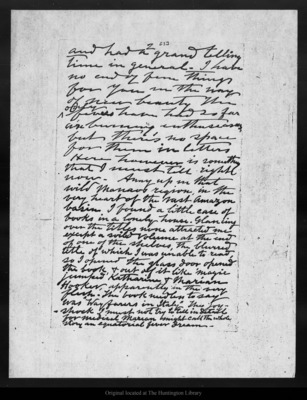 2
213
and had a grand telling
time in general. I have
no end of fine things
for you in the way
of pure beauty
fevers have had so far
an burning enthusiasm
but there's no space
for them in letters
Here however is something
that I must tell right
now. Away up in that
wild Manaos region in the
very heart of the vast Amazon
basin I found a little case of
books in a lonely house. Glancing
over the titles none attracted me
except a soiled volume at the end
of one of the shelves, the blurred
title of which I was unable to read
so I opened the glass door opened
the book, & out of it like magic
jumped Katharine & Marian
Hooker, apparently in the very
flesh. The book needless to say
was Wayfarers in Italy. The joy-
shock I must not try to tell in detail
for medical Marian might call the whole
story an equatorial fever dream.
Original located at The Huntington Library